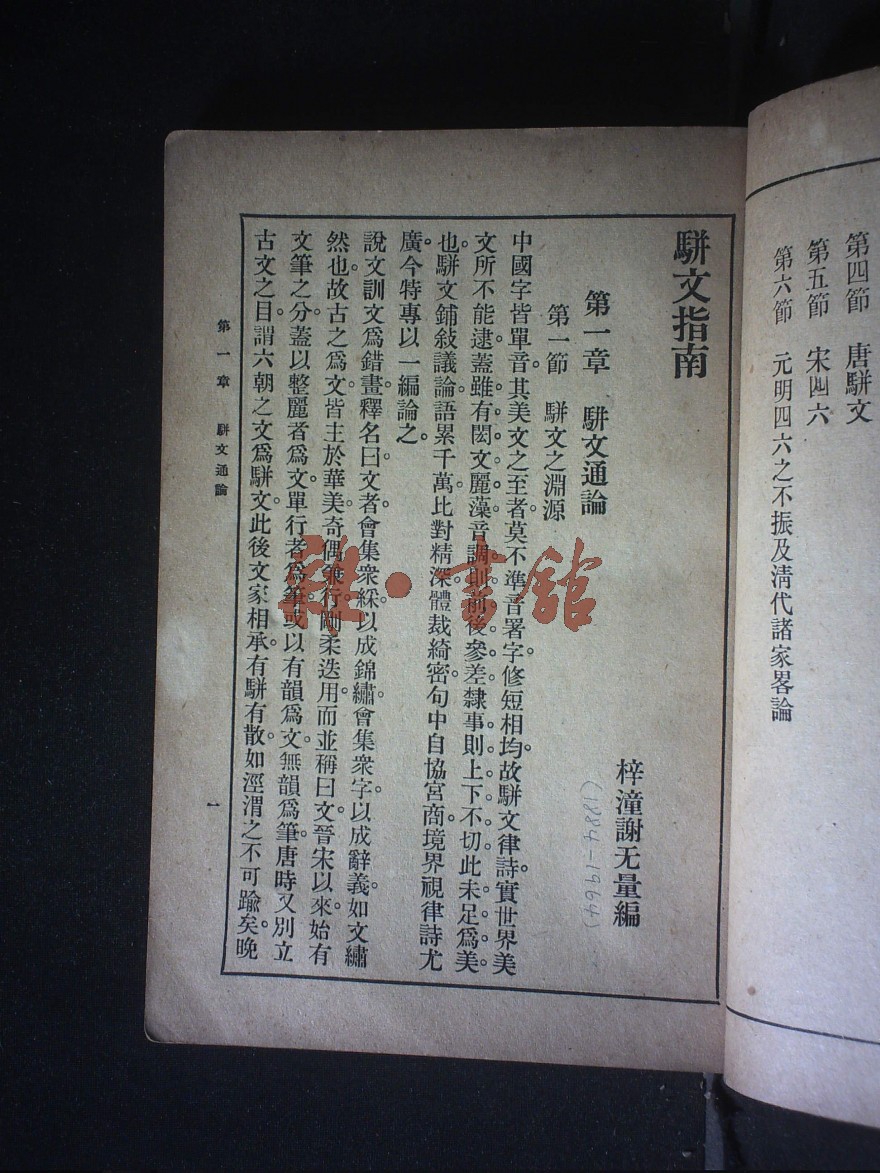 第四節　唐駢文
第五節　宋四六
第六節　元明四六之不振及淸代諸家畧論
駢文指南
梓潼謝无量編
(1884-1964)
第一章　駢文通論
第一節　駢文之淵源
中國字皆單音。其美文之至者。莫不準音署字。修短相均。故駢文律詩。實世界美
文所不能逮。蓋雖有閎文麗藻。音調則前後參差。隸事則上下不切。此未足爲美
也。駢文鋪敍議論。語累千萬。比對精深。體裁綺密。句中自協宮商。境界視律詩尤
廣。今特專以一編論之。
說文訓文爲錯畫。釋名曰。文者會集衆綵。以成錦繡。會集衆字。以成辭義。如文繡
然也。故古之爲文。皆主於華美。奇偶兼行。剛柔迭用。而並稱曰文。晉宋以來。始有
文筆之分。蓋以整麗者爲文。單行者爲筆。或以有韻爲文。無韻爲筆。唐時又別立
古文之目。謂六朝之文爲駢文。此後文家相承。有駢有散。如涇渭之不可踰矣。晚
第一章　駢文通論
一
雜·書館